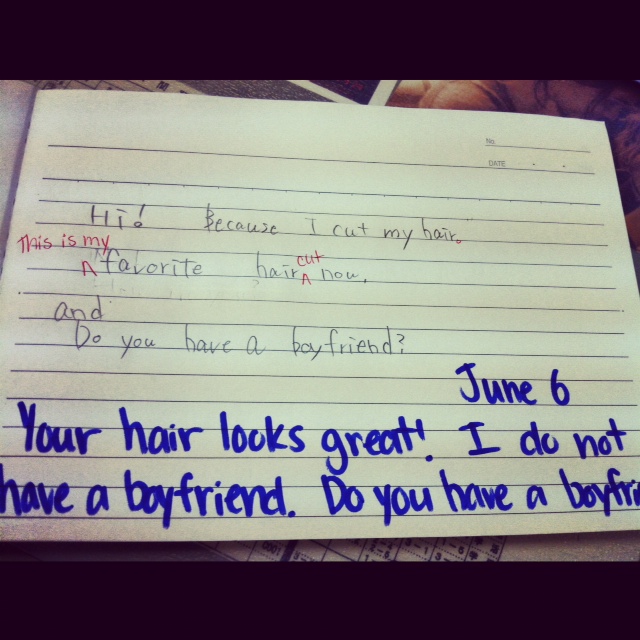 No.
DATE
Hi! Because I cut my hair.
This is my
favorite hair cut now.
and
Do you have a boyfriend?
June 6
Your hair looks great! I do not
have a boyfriend. Do you have a boyfri